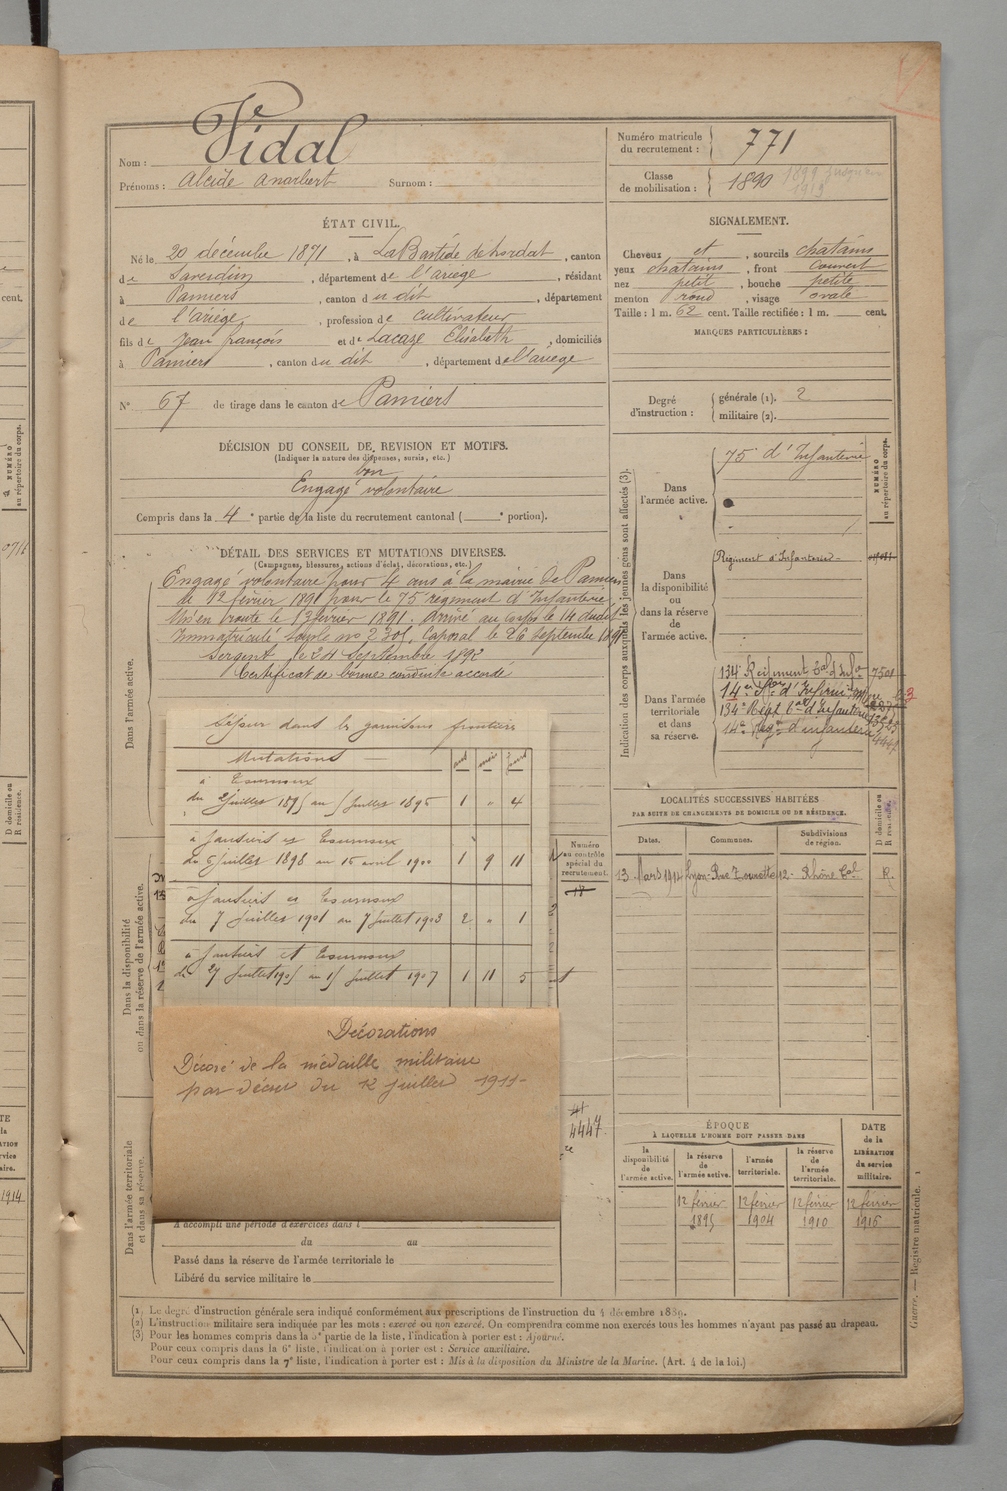 Vidal
Nom :
Prénoms : Alcide Surnom :
Numéro matricule
du recrutement : 771
Classe
de mobilisation : 1890
ÉTAT CIVIL.
Né le 20 décembre 1871, à La Bastide de Lordat, canton
de Saverdun, département de l'ariège, résidant
à Pamiers, canton du dit, département
de l'ariège, profession de cultivateur
fils de Jean françois et de Lacaze Elisabeth, domiciliés
à Pamiers, canton du dit, département de l'ariege
N° 67 de tirage dans le canton de Pamiers
SIGNALEMENT.
Cheveux et, sourcils chatains
yeux chatains, front couvert
nez petit, bouche petite
menton rond, visage ovale
Taille : 1 m. 62 cent. Taille rectifiée : 1 m. cent.
MARQUES PARTICULIÈRES :
Degré
d'instruction :
générale (1). 2
militaire (2).
DÉCISION DU CONSEIL DE REVISION ET MOTIFS.
(Indiquer la nature des dispenses, sursis, etc.)
bon
Engagé volontaire
Compris dans la 4e partie de la liste du recrutement cantonal ( e portion).
DÉTAIL DES SERVICES ET MUTATIONS DIVERSES.
(Campagnes, blessures, actions d'éclat, décorations, etc.)
Dans l'armée active.
Engagé volontaire pour 4 ans à la mairie de Pamiers
le 12 février 1891 pour le 75 régiment d'Infanterie
Mis en route le 13 février 1891. Arrivé au corps le 14 dudit
Immatriculé sous le no 2301. Caporal le 26 Septembre 1891
Sergent le 24 Septembre 1892
Certificat de bonne conduite accordé
Séjour dans les garnisons frontière
Mutations ans mois jours
à Tournoux
du 2 juillet 1895 au 5 juillet 1896 1 " 4
à Jausiers et Tournoux
du 5 juillet 1898 au 15 avril 1900 1 9 11
à Jausiers et Tournoux
du 7 juillet 1901 au 7 juillet 1903 2 " 1
à Jausiers et Tournoux
du 27 juillet 1905 au 1 juillet 1907 1 11 5
Décorations
Décoré de la médaille militaire
par décret du 12 juillet 1911-
Dans la disponibilité
ou dans la réserve de l'armée active.
Dans l'armée territoriale
et dans sa réserve.
Numéro
au contrôle
spécial du
recrutement.
17
4447
A accompli une période d'exercices dans l
du au
Passé dans la réserve de l'armée territoriale le
Libéré du service militaire le
Indication des corps auxquels les jeunes gens sont affectés (3).
NUMÉRO
au répertoire du corps.
Dans
l'armée active.
75e d'Infanterie
Dans
la disponibilité
ou
dans la réserve
de
l'armée active.
Régiment d'Infanterie
Dans l'armée
territoriale
et dans
sa réserve.
134e Régiment Tal d'Infie 7501
134e Régt Tal d'Infanterie
14e Régt d'infanterie
LOCALITÉS SUCCESSIVES HABITÉES
PAR SUITE DE CHANGEMENTS DE DOMICILE OU DE RÉSIDENCE.
Dates. Communes. Subdivisions
de région.
D domicile ou
R résidence.
13 Mars 1914 Lyon-Rue Tourette 12- Rhône Cal R.
ÉPOQUE
À LAQUELLE L'HOMME DOIT PASSER DANS
la
disponibilité
de
l'armée active.
la réserve
de
l'armée active.
l'armée
territoriale.
la réserve
de
l'armée
territoriale.
DATE
de la
LIBÉRATION
du service
militaire.
12 février 12 février 12 février 12 février
1895 1904 1910 1916
(1) Le degré d'instruction générale sera indiqué conformément aux prescriptions de l'instruction du 4 décembre 1889.
(2) L'instruction militaire sera indiquée par les mots : exercé ou non exercé. On comprendra comme non exercés tous les hommes n'ayant pas passé au drapeau.
(3) Pour les hommes compris dans la 5e partie de la liste, l'indication à porter est : Ajourné.
Pour ceux compris dans la 6e liste, l'indication à porter est : Service auxiliaire.
Pour ceux compris dans la 7e liste, l'indication à porter est : Mis à la disposition du Ministre de la Marine. (Art. 4 de la loi.)
Guerre. — Registre matricule. 1